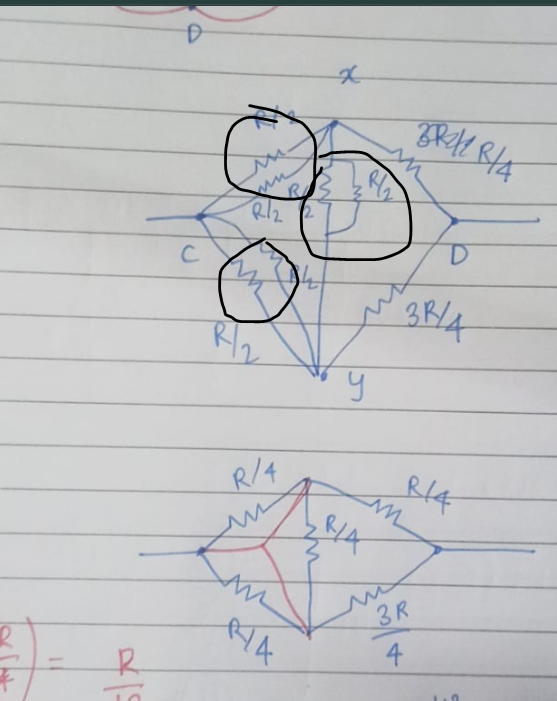 D
x
R/2
R/4
R/2
R/2
R/2
C
D
R/2
3R/4
R/2
y
R/4
R/4
R/4
R/4
3R/4
R
=
R